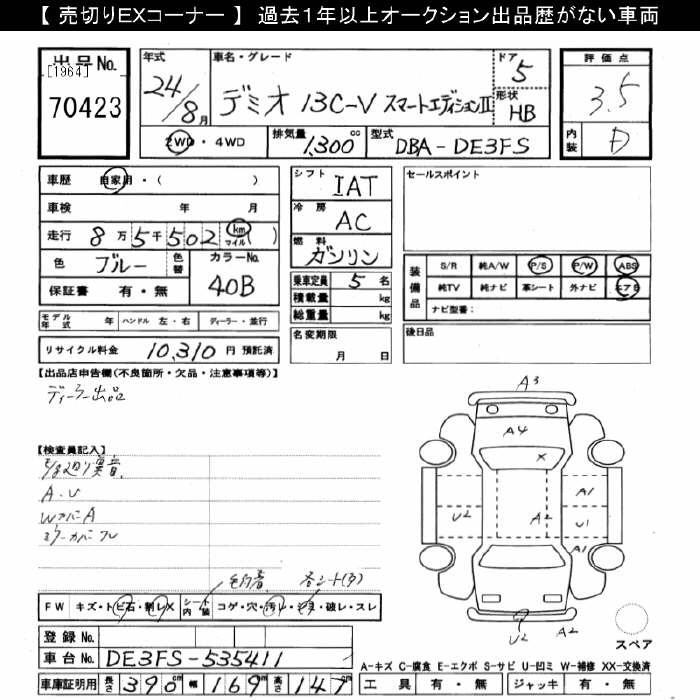 【 売切りEXコーナー 】 過去１年以上オークション出品歴がない車両
出品No.
[1964]
70423
年式
24/8月
車名・グレード
デミオ 13C-V スマートエディションⅡ
ドア
5
形状
HB
2WD・4WD
排気量
1,300cc
型式
DBA-DE3FS
評価点
3.5
内装
D
車歴 自家用・( )
車検 年 月
走行 8万5千502 km マイル ( )
色 ブルー 色替
カラーNo.
40B
保証書 有・無
モデル年式 年 ハンドル 左・右 ディーラー・並行
リサイクル料金 10,310 円 預託済
シフト
IAT
冷房
AC
燃料
ガソリン
乗車定員 5 名
積載量 kg
総重量 kg
名変期限
月 日
セールスポイント
装備品
S/R 純A/W P/S P/W ABS
純TV 純ナビ 革シート 外ナビ エアB
ナビ型番：
後日品
【出品店申告欄(不良箇所・欠品・注意事項等)】
ディーラー出品
【検査員記入】
A・U
WカバーA
FW キズ・トビ石・割レX
シート内装 コゲ・穴・汚レ・シミ・破レ・スレ
登録No.
車台No. DE3FS-535411
車庫証明用 長さ 390 幅 169 高さ 147
A3
A4
X
U2
A2
A1
U1
A1
U2
A2
スペア
A-キズ C-腐食 E-エクボ S-サビ U-凹ミ W-補修 XX-交換済
工具 有・無 ジャッキ 有・無